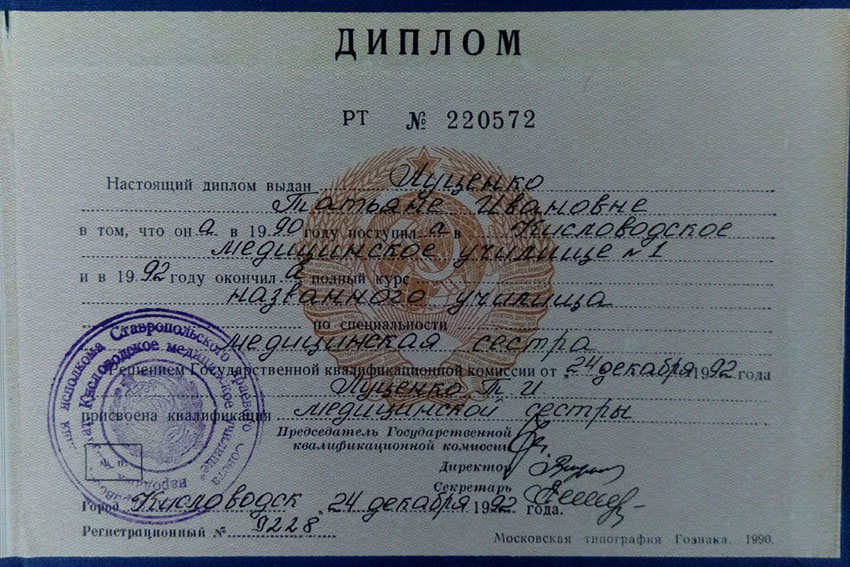 ДИПЛОМ
РТ № 220572
Настоящий диплом выдан Луценко
Татьяне Ивановне
в том, что он а в 1990 году поступил а в Кисловодское
медицинское училище №1
и в 1992 году окончил а полный курс
названного училища
по специальности
медицинская сестра
Решением Государственной квалификационной комиссии от „24 декабря 1992 года
Луценко Т И
присвоена квалификация медицинской сестры
Председатель Государственной
квалификационной комиссии
Директор
Секретарь
Город Кисловодск, 24 декабря 1992 года.
Регистрационный № 9228
Московская типография Гознака. 1990.
исполкома Ставропольского краевого Совета
Кисловодское медицинское училище
М. П.